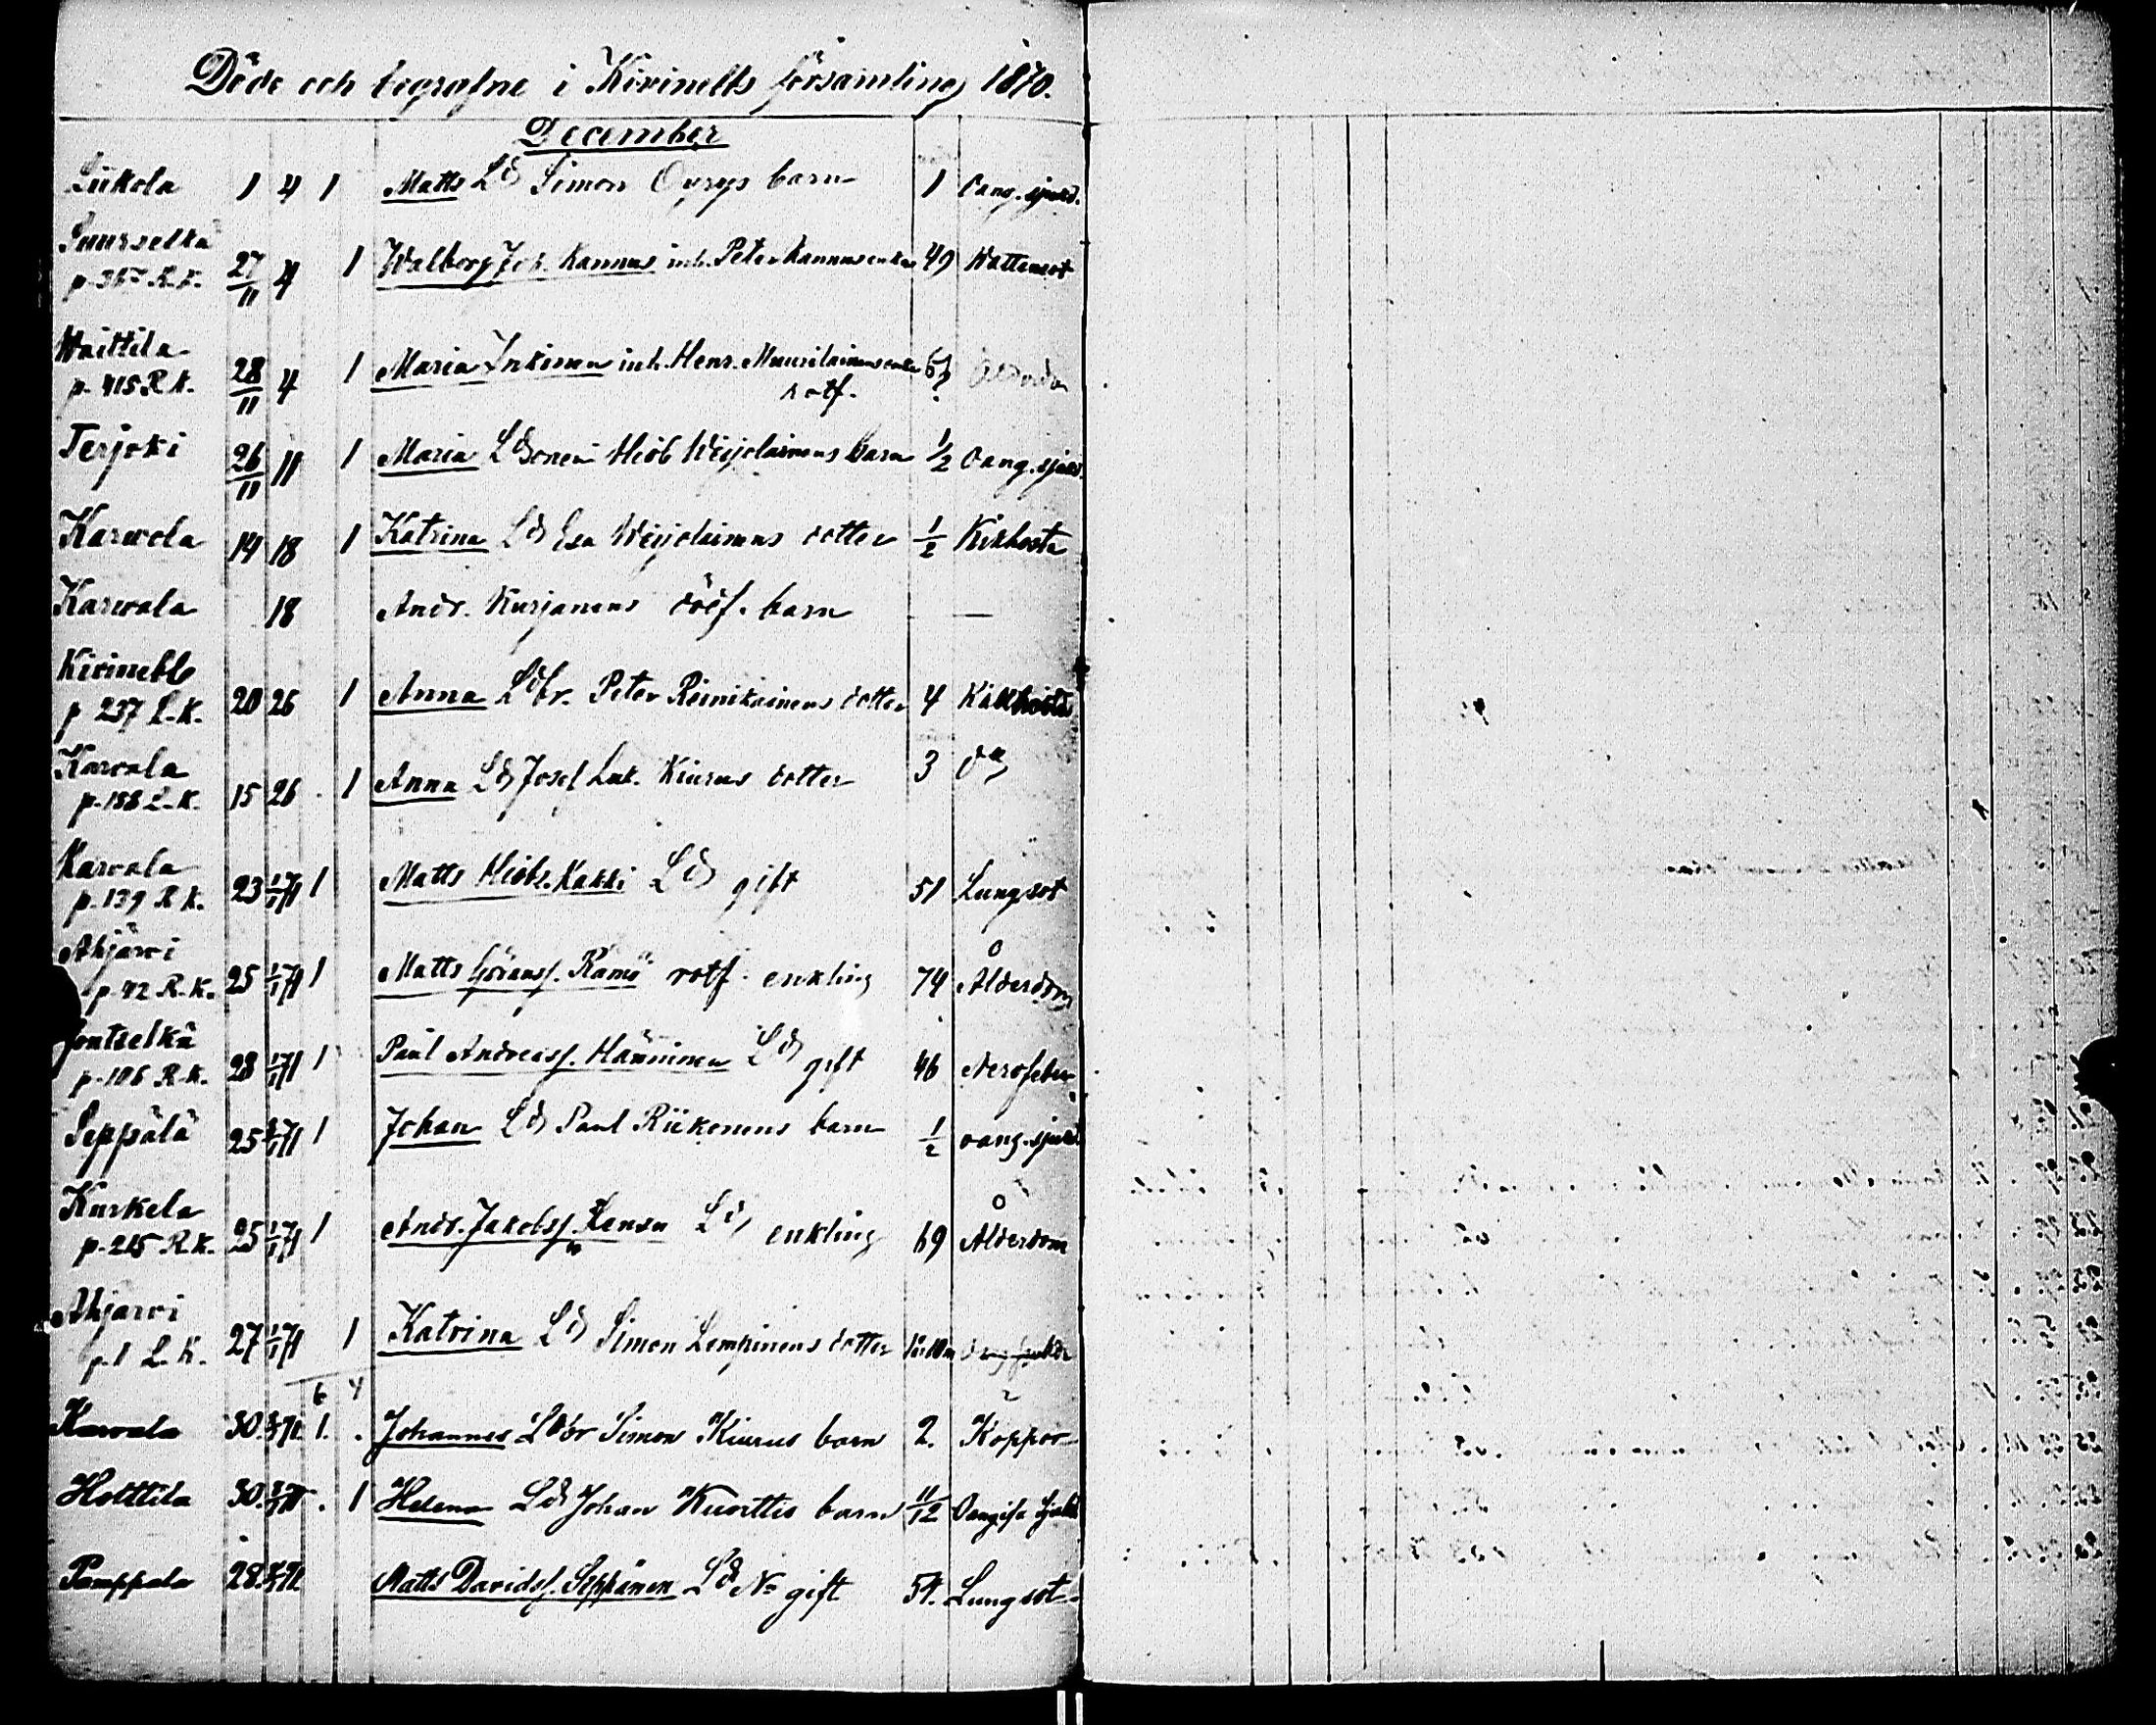 Döde och begrafne i Kivinebb församling 1870.
December
Liikola 1 4 1 Matts Ld Simon Oyrys barn 1 oang. sjukd.
Suurselkä
p. 367 R.K. 27/11 4 1 Walborg Joh. Kannus inh. Peter Kannus enka 49 Wattusot
Waittila
p. 415 R.K. 28/11 4 1 Maria Inkinen inh. Henr. Muurilainens enka
rotf.
Terjoki 26/11 11 1 Maria Hiob Weijolainens barn 1/2 oang. sjukd.
Karwola 14 18 1 Katrina Ld Esa Weijolainens dotter 1/2 Kikhosta
Karwala 18 Andr. Kurjanens dödf. barn —
Kivinebb
p 237 L.K. 20 26 1 Anna Ldbr. Peter Reinikainens dotter 4 Kikhosta
Karvala
p. 158 L.K. 15 26 1 Anna Ld Josef Luk. Kiurus dotter 3 do
Karvala
p. 139 R.K. 23 1/1 71 1 Matts Hiobs. Kakki Ld gift 51 Lungsot
Ahjärvi
p. 42 R.K. 25 1/1 71 1 Matts Göransf. Rämö rotf. enkling 74 Ålderdom
Joutselkä
p. 106 R.K. 28 1/1 71 1 Paul Andreasf. Hänninen Ld gift 46 Nervfeber
Seppälä 25 71 1 Johan Ld Paul Riikonens barn 1/2 oang. sjukd.
Kurkela
p. 215 R.K. 25 1/1 71 1 Andr. Jakobsf. Ld enkling 69 Ålderdom
Ahjarvi
p. 1 L.K. 27 1/1 71 1 Katrina Ld Simon Lempinens dotter
6 4
Karvala 30. 71. 1. Johannes Ldbr Simon Kiurus barn 2. Koppor
Holttila 30. 1 Helena Ld Johan Kuorttis barn 11/12 Oangifn sjukd
Pamppala 28. 71. Matts Davidsf. Seppänen Ld No gift 54. Lungsot